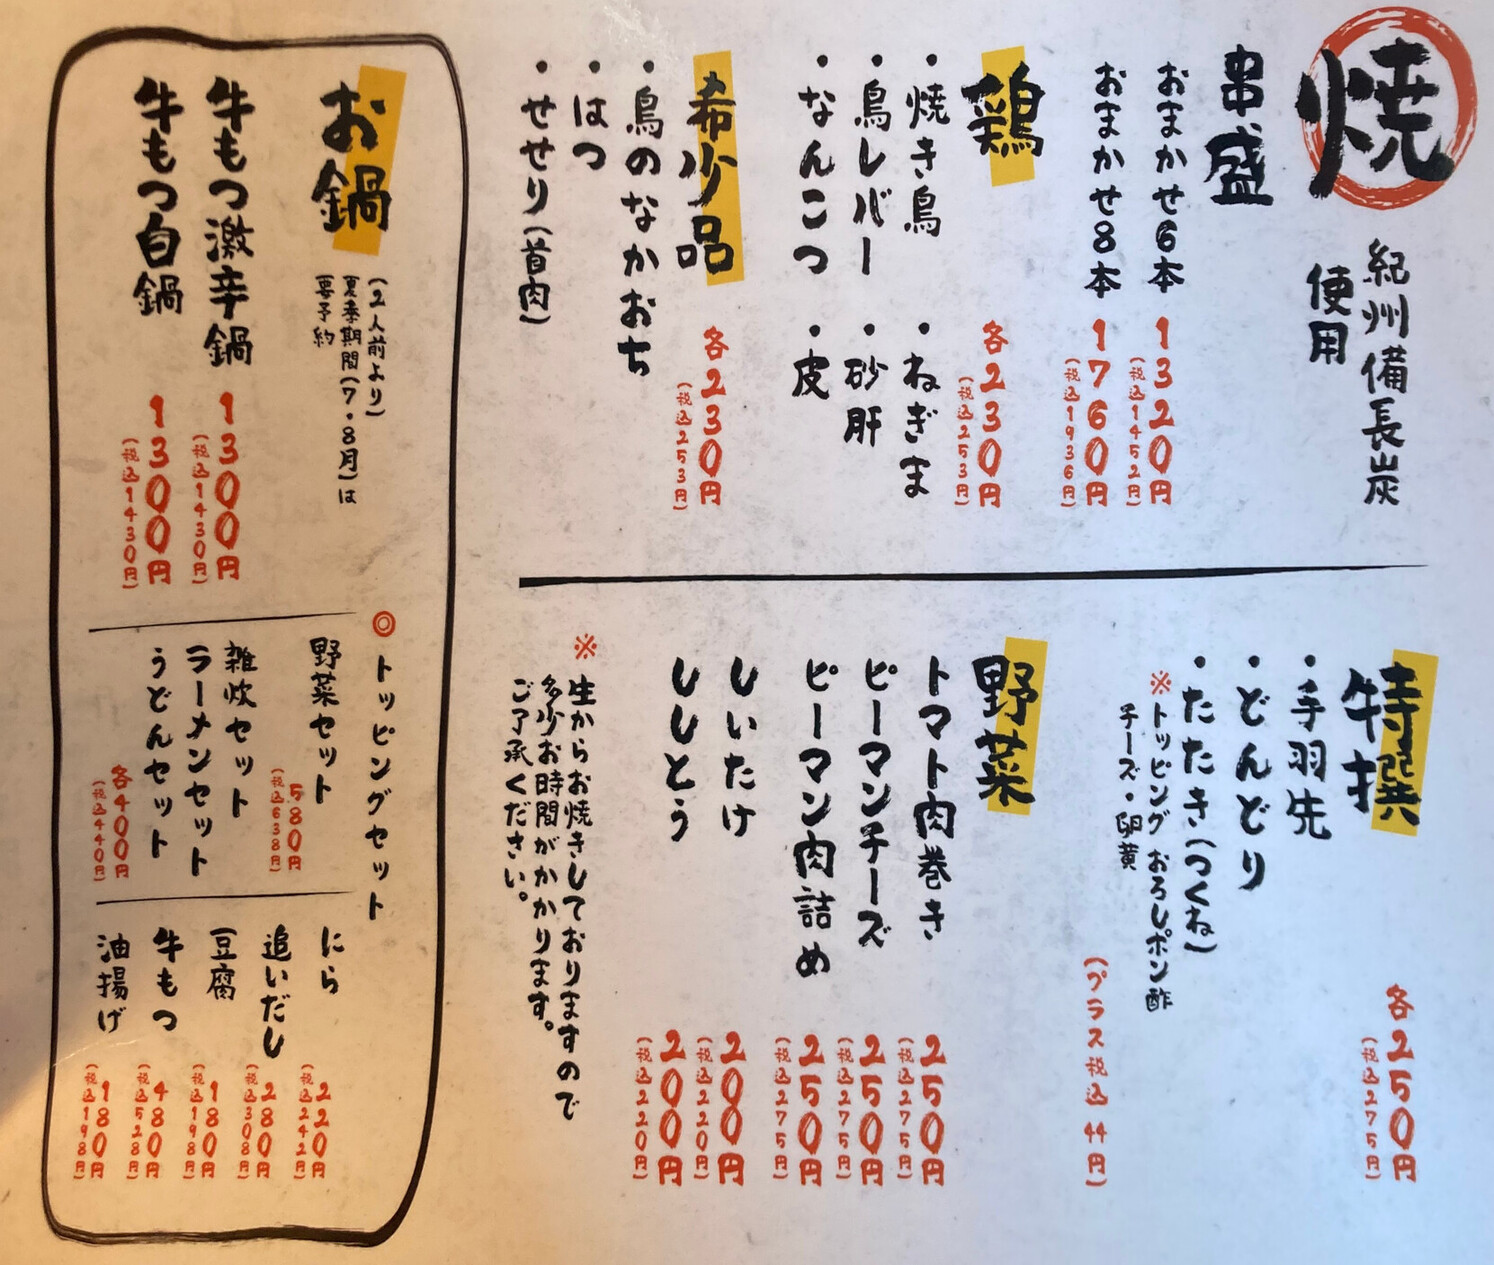 焼
紀州備長炭
使用
串盛
おまかせ6本 1320円
(税込1452円)
おまかせ8本 1760円
(税込1936円)
鶏 各230円
(税込253円)
・焼き鳥 ・ねぎま
・鳥レバー ・砂肝
・なんこつ ・皮
希少品 各230円
(税込253円)
・鳥のなかおち
・はつ
・せせり(首肉)
特撰 各250円
(税込275円)
・手羽先
・どんどり
・たたき(つくね)
※トッピング おろしポン酢
チーズ・卵黄 (プラス税込44円)
野菜
トマト肉巻き 250円
(税込275円)
ピーマンチーズ 250円
(税込275円)
ピーマン肉詰め 250円
(税込275円)
しいたけ 200円
(税込220円)
ししとう 200円
(税込220円)
※生からお焼きしておりますので
多少お時間がかかります。
ご了承ください。
お鍋
(2人前より)
夏季期間(7・8月)は
要予約
牛もつ激辛鍋 1300円
(税込1430円)
牛もつ白鍋 1300円
(税込1430円)
◎トッピングセット
野菜セット 580円
(税込638円)
雑炊セット
ラーメンセット
うどんセット 各400円
(税込440円)
にら 220円
(税込242円)
追いだし 280円
(税込308円)
豆腐 180円
(税込198円)
牛もつ 480円
(税込528円)
油揚げ 180円
(税込198円)